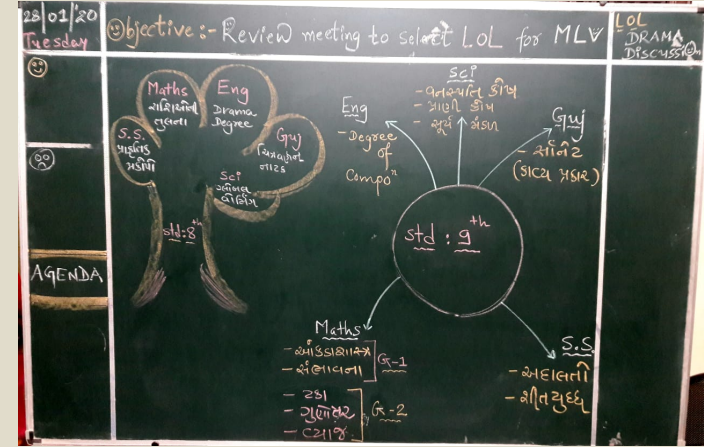 28/01/'20
Tuesday
Objective :- Review meeting to select LOL for MLV
LOL
DRAMA
DISCUSSION
AGENDA
Maths
રાશિઓની
તુલના
Eng
Drama
Degree
S.S.
પ્રાકૃતિક
Guj
નાટક
Sci
ગ્લોબલ
વોર્મિંગ
std : 8th
Eng
- Degree
of
Compoⁿ
Sci
- વનસ્પતિ કોષ
- પ્રાણી કોષ
- સૂર્ય મંડળ
Guj
- સૉનેટ
(કાવ્ય પ્રકાર)
std : 9th
Maths
- આંકડાશાસ્ત્ર
- સંભાવના
G-1
- ટકા
- ગુણોત્તર
- વ્યાજ
G-2
S.S.
- અદાલતી
- શીતયુદ્ધ